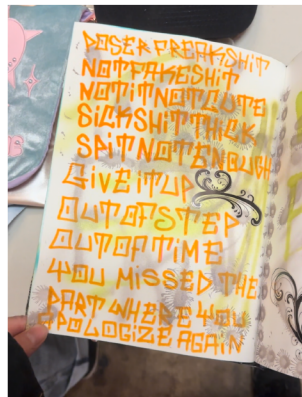 POSERFREAKSHiT
NOTFAKESHiT
NOTiTNOTCUTE
SiCKSHiTTHiCK
SPiTNOTENOUGH
GiVE iTUP
OUTOFSTEP
OUTOFTiME
YOU MiSSED THE
PART WHERE YOU
APOLOGiZE AGAiN